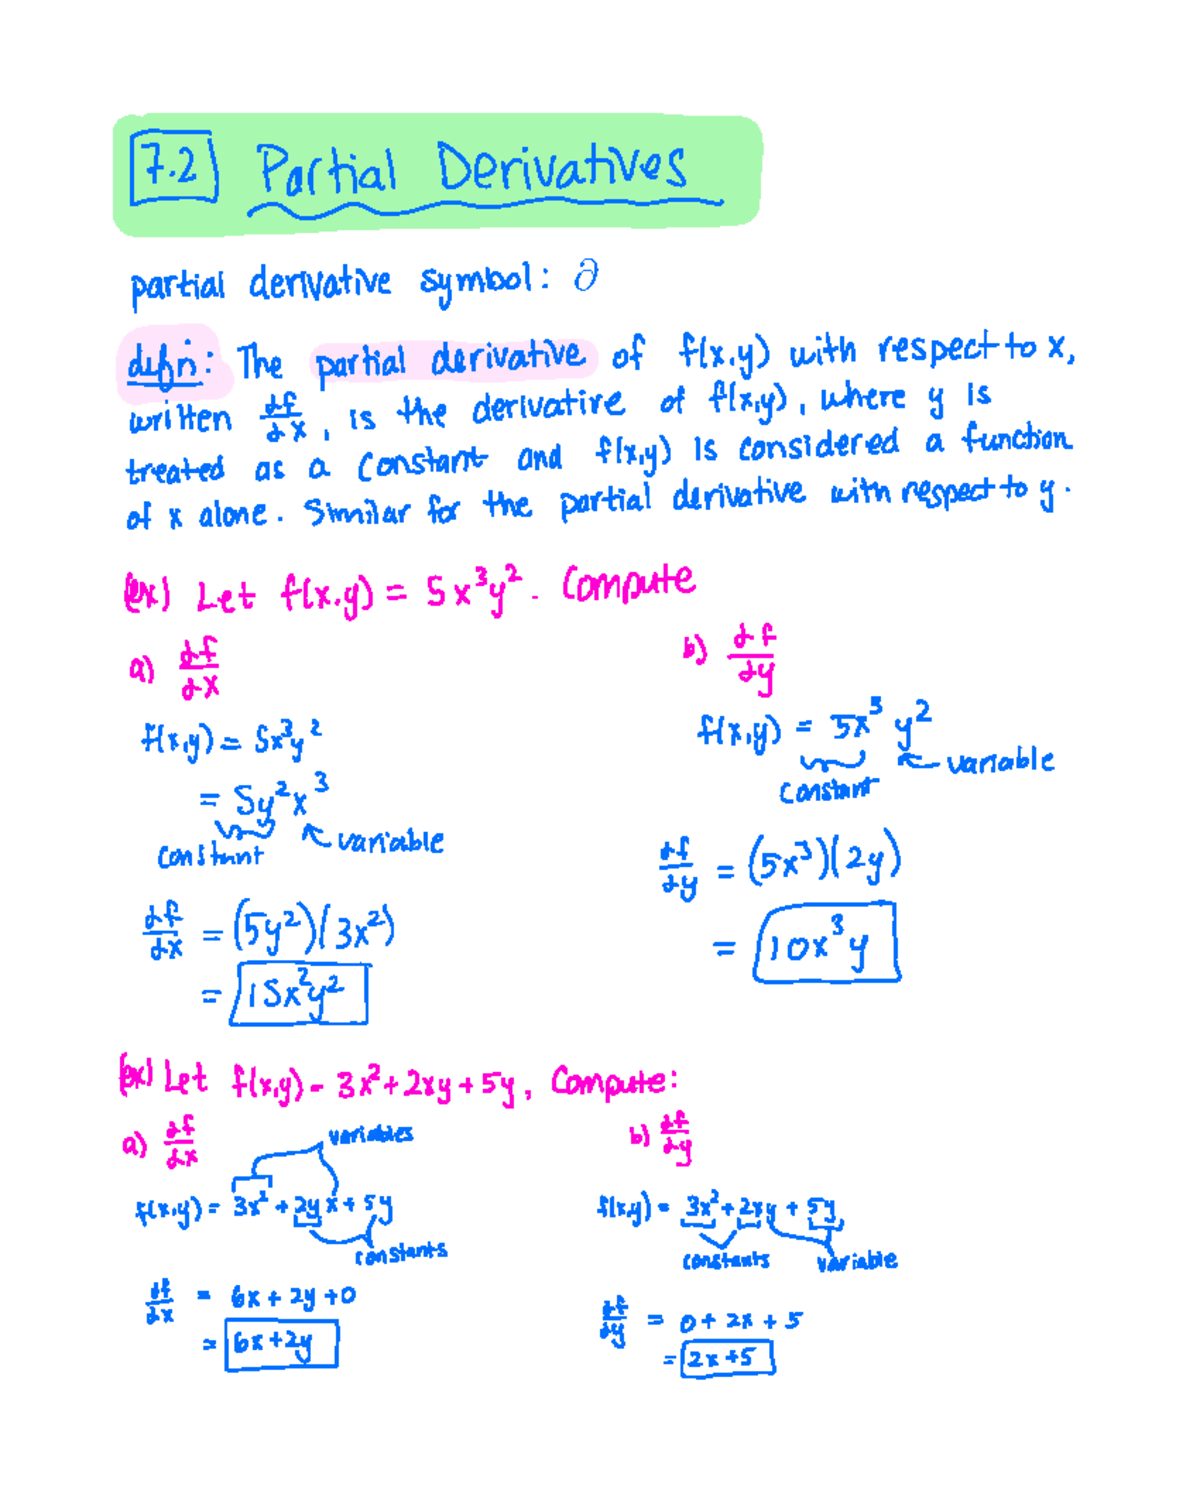 7.2 Partial Derivatives
partial derivative symbol: ∂
defn: The partial derivative of f(x,y) with respect to x,
written ∂f/∂x, is the derivative of f(x,y), where y is
treated as a constant and f(x,y) is considered a function
of x alone. Similar for the partial derivative with respect to y.
(ex) Let f(x,y) = 5x³y². Compute
a) ∂f/∂x
f(x,y) = 5x³y²
= 5y²x³
constant variable
∂f/∂x = (5y²)(3x²)
= 15x²y²
b) ∂f/∂y
f(x,y) = 5x³y²
constant variable
∂f/∂y = (5x³)(2y)
= 10x³y
(ex) Let f(x,y) = 3x²+2xy+5y, Compute:
a) ∂f/∂x
variables
f(x,y) = 3x²+2yx+5y
constants
∂f/∂x = 6x+2y+0
= 6x+2y
b) ∂f/∂y
f(x,y) = 3x²+2xy+5y
constants variable
∂f/∂y = 0+2x+5
= 2x+5